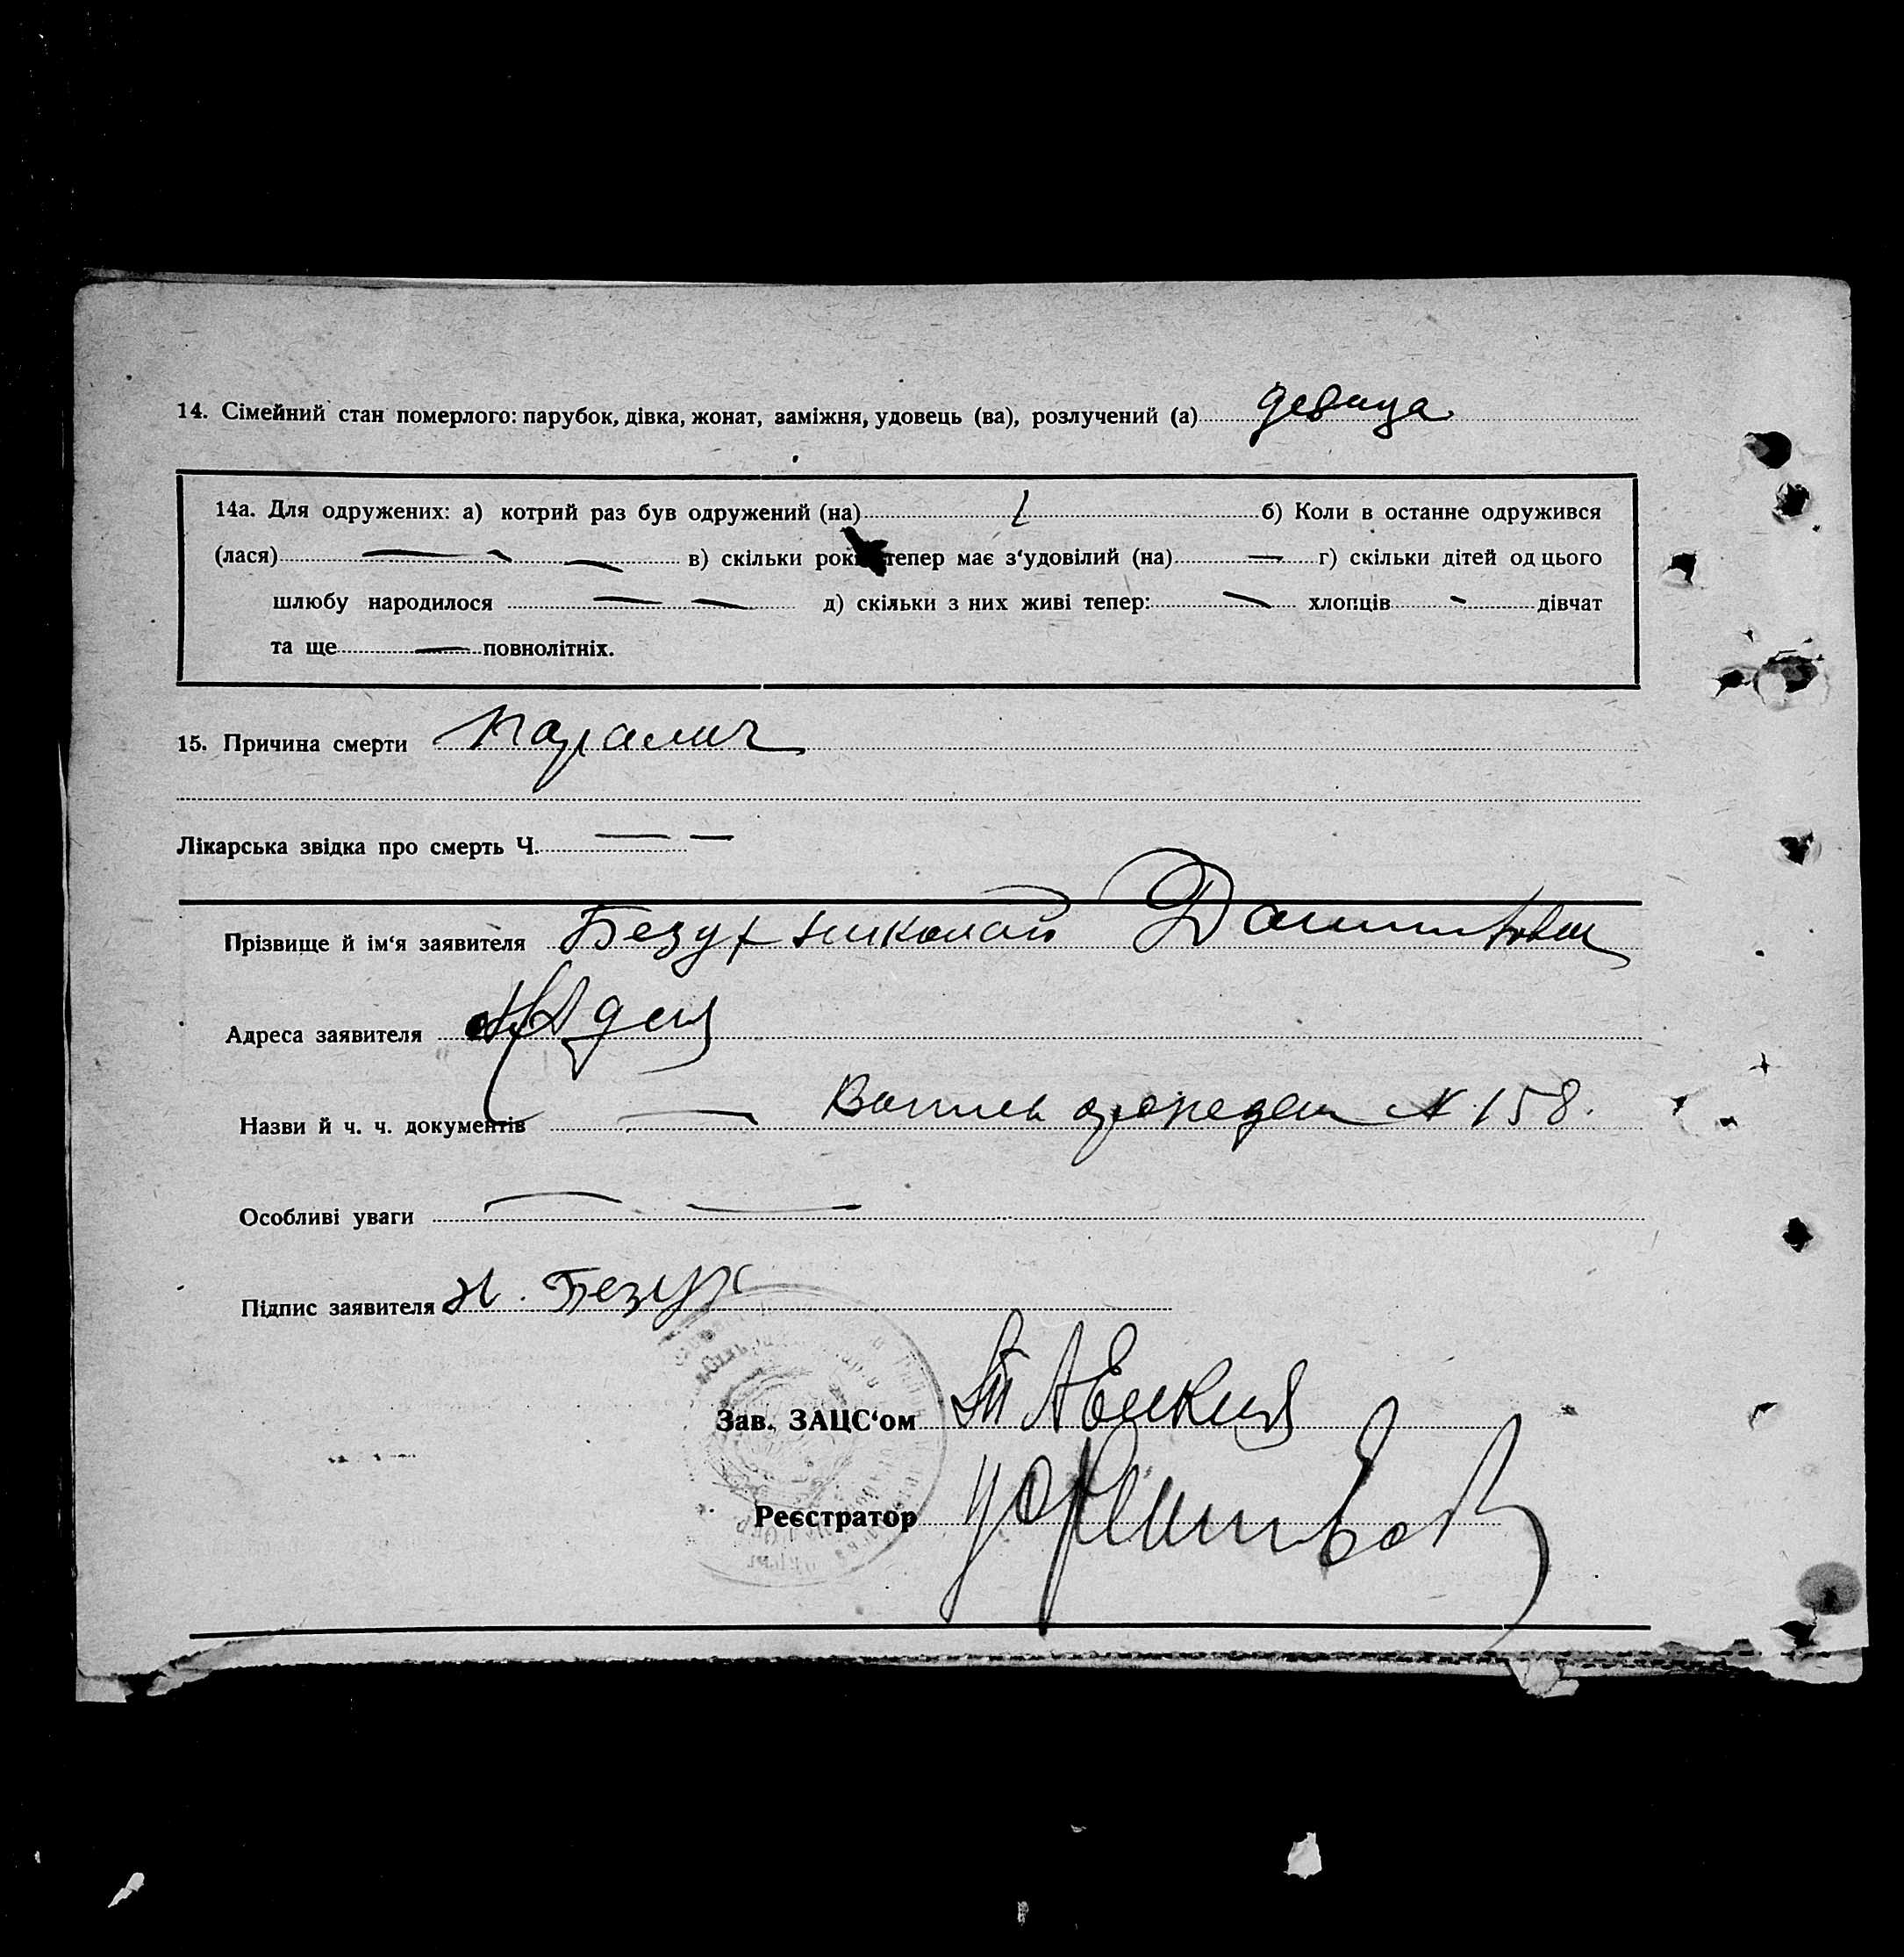 14. Сімейний стан померлого: парубок, дівка, жонат, заміжня, удовець (ва), розлучений (а) девица
14а. Для одружених: а) котрий раз був одружений (на) б) Коли в останне одружився
(лася) в) скільки років тепер має з‘удовілий (на) г) скільки дітей од цього
шлюбу народилося д) скільки з них живі тепер: хлопців дівчат
та ще повнолітніх.
15. Причина смерти паралич
Лікарська звідка про смерть Ч.
Прізвище й ім‘я заявителя Безух Николай
Адреса заявителя
Назви й ч. ч. документів № 158.
Особливі уваги
Підпис заявителя Н. Безух
Зав. ЗАЦС‘ом
Реєстратор